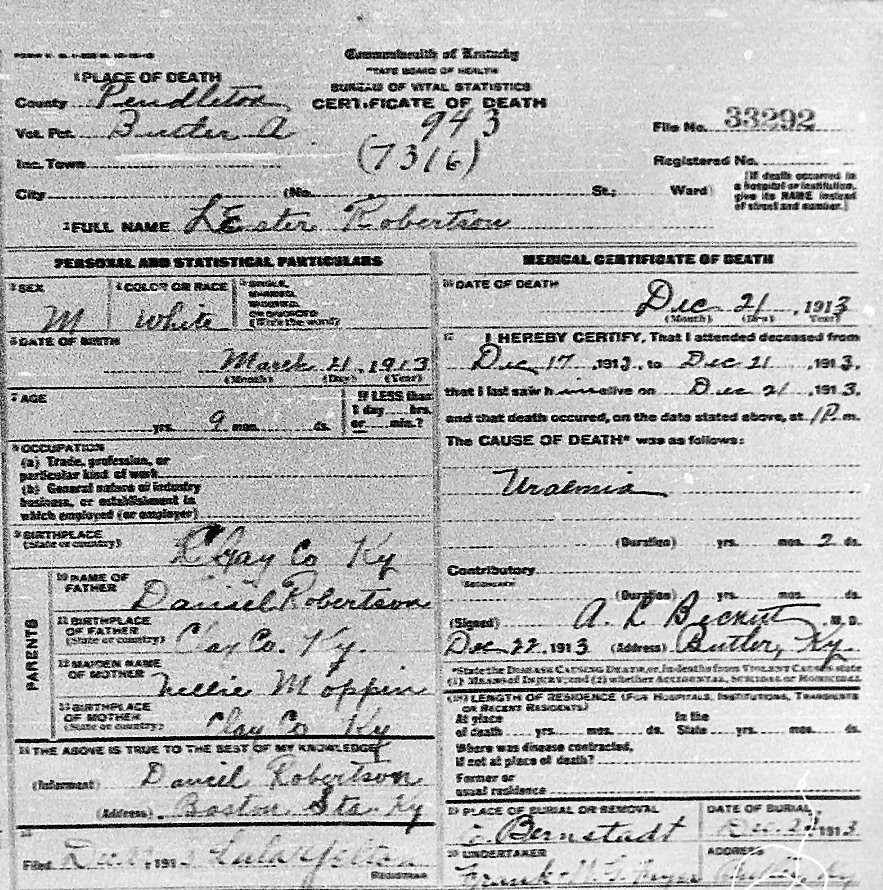 Commonwealth of Kentucky
STATE BOARD OF HEALTH
BUREAU OF VITAL STATISTICS
CERTIFICATE OF DEATH
1 PLACE OF DEATH
County Pendleton
Vot. Pct. Butler A
943
File No. 33292
Inc. Town
(7316)
Registered No.
City (No. St.; Ward)
[If death occurred in
a hospital or institution,
give its NAME instead
of street and number.]
2 FULL NAME LEster Robertson
PERSONAL AND STATISTICAL PARTICULARS
3 SEX
M
4 COLOR OR RACE
White
5 SINGLE,
MARRIED,
WIDOWED,
OR DIVORCED
(Write the word)
6 DATE OF BIRTH
March 21, 1913
(Month) (Day) (Year)
7 AGE
yrs. 9 mos. ds.
If LESS than
1 day hrs.
or min.?
8 OCCUPATION
(a) Trade, profession, or
particular kind of work
(b) General nature of industry
business, or establishment in
which employed (or employer)
9 BIRTHPLACE
(State or country)
Clay Co Ky
PARENTS
10 NAME OF
FATHER
Daniel Robertson
11 BIRTHPLACE
OF FATHER
(State or country)
Clay Co. Ky.
12 MAIDEN NAME
OF MOTHER
Nellie Moppin
13 BIRTHPLACE
OF MOTHER
(State or country)
Clay Co Ky
14 THE ABOVE IS TRUE TO THE BEST OF MY KNOWLEDGE
(Informant) Daniel Robertson
(Address) Boston Sta. Ky
15
Filed Dec. 191 Lula Yelton
REGISTRAR
MEDICAL CERTIFICATE OF DEATH
16 DATE OF DEATH
Dec 21, 1913
(Month) (Day) (Year)
17 I HEREBY CERTIFY, That I attended deceased from
Dec 17, 1913, to Dec 21, 1913,
that I last saw him alive on Dec 21, 1913,
and that death occured, on the date stated above, at 1P m.
The CAUSE OF DEATH* was as follows:
Uraemia
(Duration) yrs. mos. 2 ds.
Contributory
SECONDARY
(Duration) yrs. mos. ds.
(Signed) A. L. M. D.
Dec 22, 1913 (Address) Butler, Ky.
*State the DISEASE CAUSING DEATH, or, in deaths from VIOLENT CAUSES state
(1) MEANS OF INJURY; and (2) whether ACCIDENTAL, SUICIDAL or HOMICIDAL
18 LENGTH OF RESIDENCE (FOR HOSPITALS, INSTITUTIONS, TRANSIENTS
OR RECENT RESIDENTS)
At place In the
of death yrs. mos. ds. State yrs. mos. ds.
Where was disease contracted,
if not at place of death?
Former or
usual residence
19 PLACE OF BURIAL OR REMOVAL
E Bernstadt
DATE OF BURIAL
Dec. 1913
20 UNDERTAKER
Frank
ADDRESS
Butler Ky